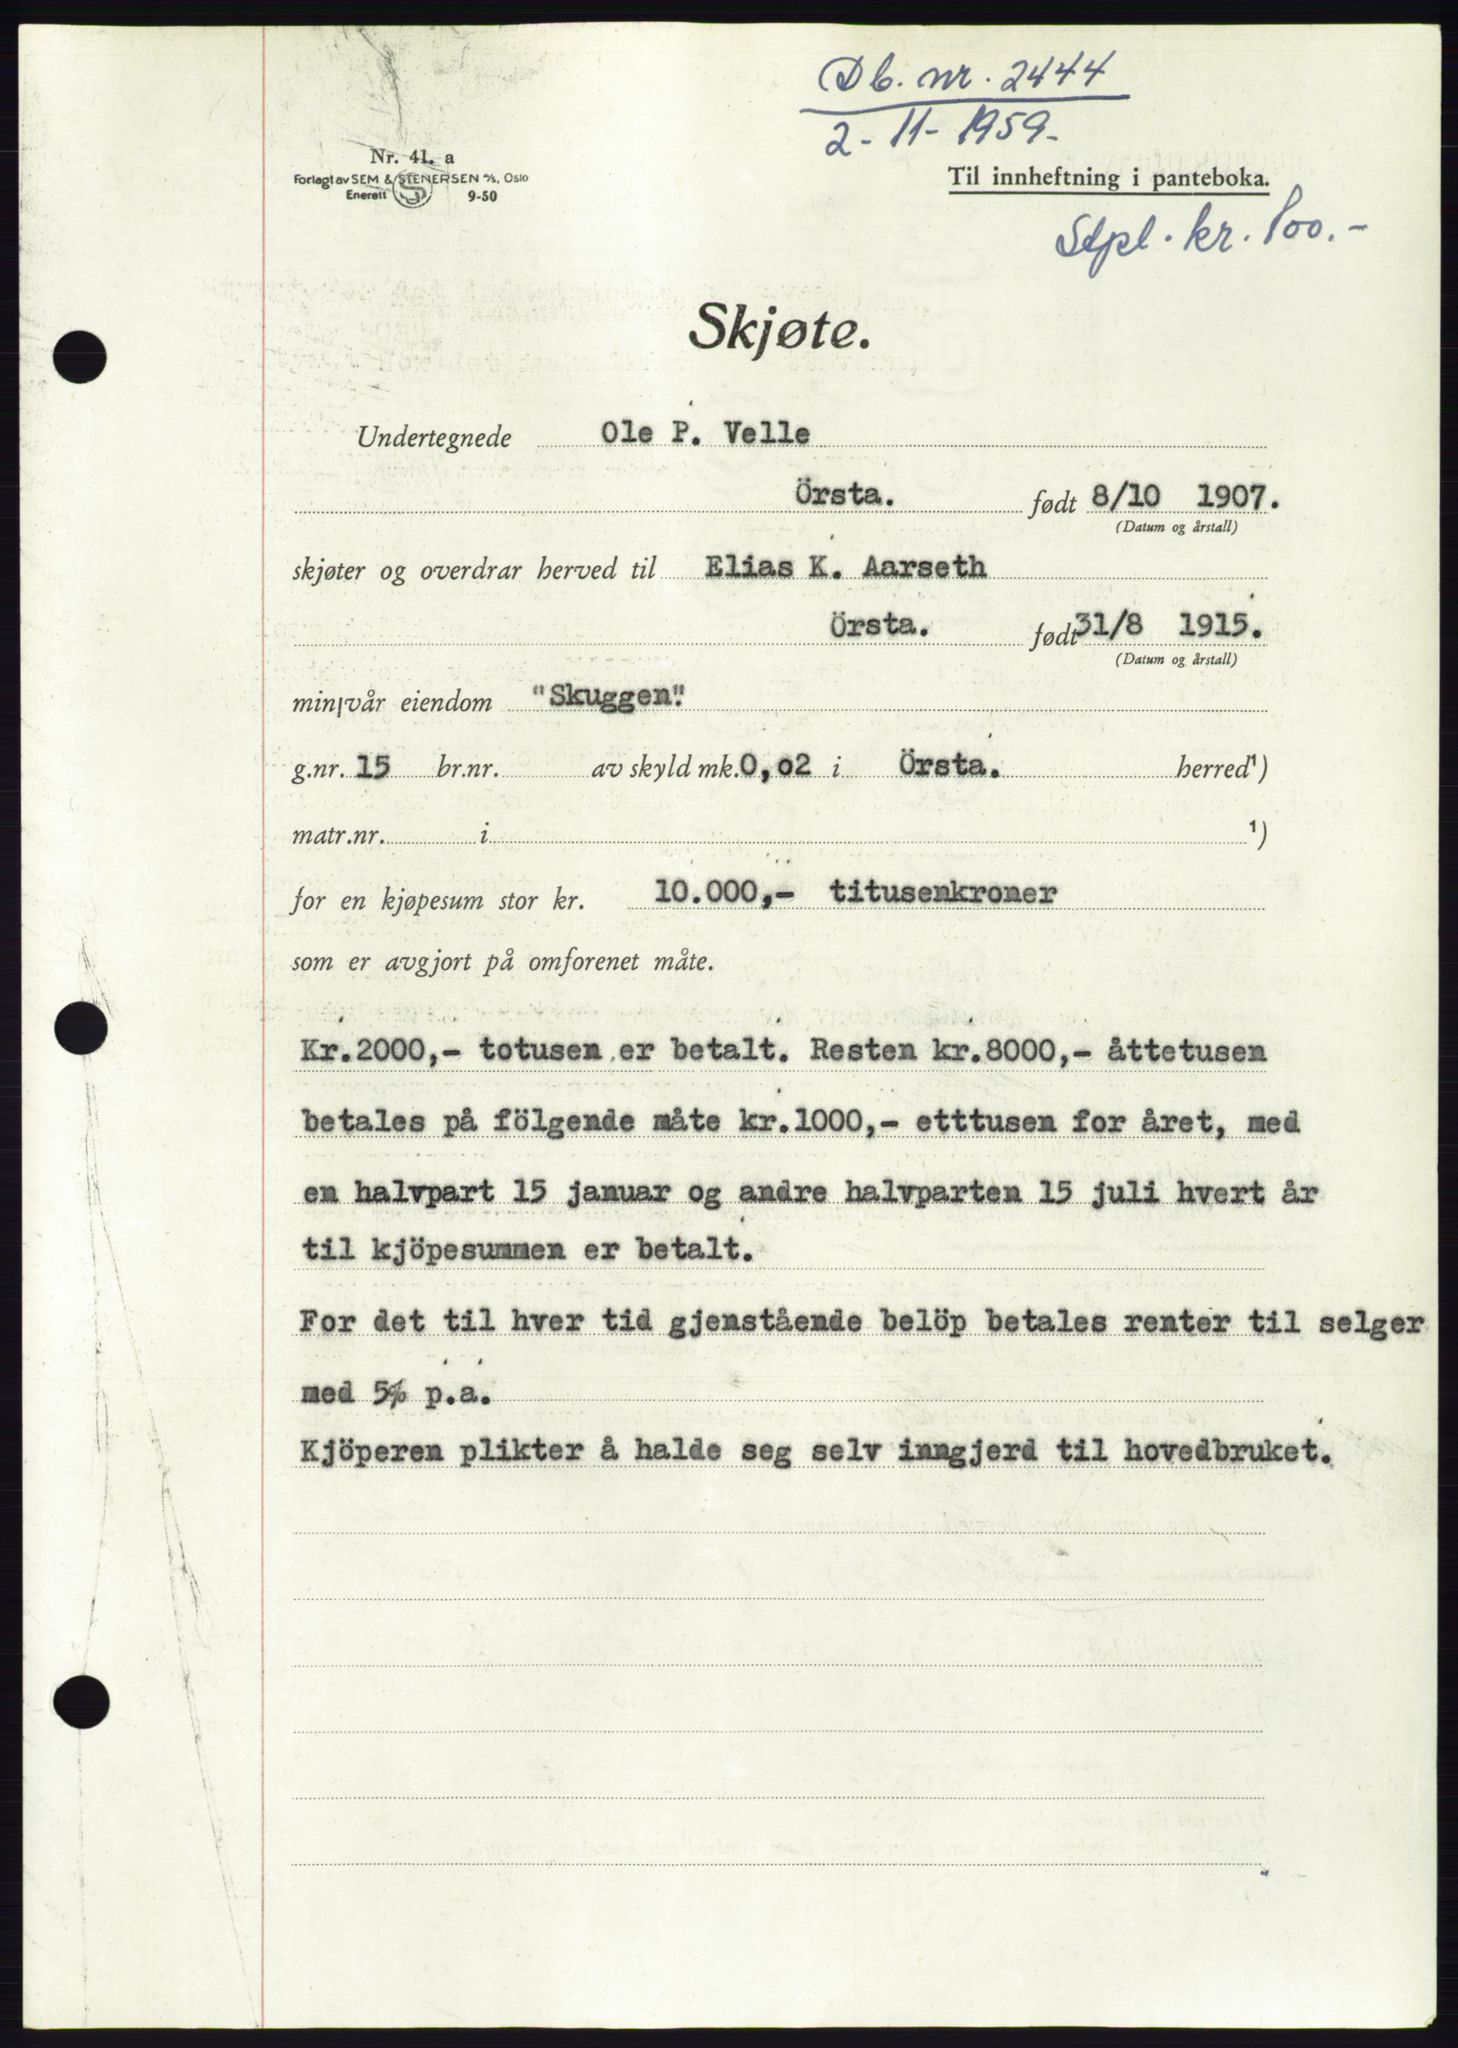 Db. nr. 2444
2-11-1959-
Nr. 41. a
Forlagt av SEM & STENERSEN A/S, Oslo
Enerett S 9-50
Til innheftning i panteboka.
Stpl. kr. 100.-
Skjøte.
Undertegnede Ole P. Velle
Örsta. født 8/10 1907.
(Datum og årstall)
skjøter og overdrar herved til Elias K. Aarseth
Örsta. født 31/8 1915.
(Datum og årstall)
min/vår eiendom "Skuggen".
g.nr. 15 br.nr. av skyld mk. 0,o2 i Örsta. herred¹)
matr.nr. i ¹)
for en kjøpesum stor kr. 10.000,- titusenkroner
som er avgjort på omforenet måte.
Kr.2000,- totusen er betalt. Resten kr.8000,- åttetusen
betales på fölgende måte kr.1000,- etttusen for året, med
en halvpart 15 januar og andre halvparten 15 juli hvert år
til kjöpesummen er betalt.
For det til hver tid gjenstående belöp betales renter til selger
med 5% p.a.
Kjöperen plikter å halde seg selv inngjerd til hovedbruket.